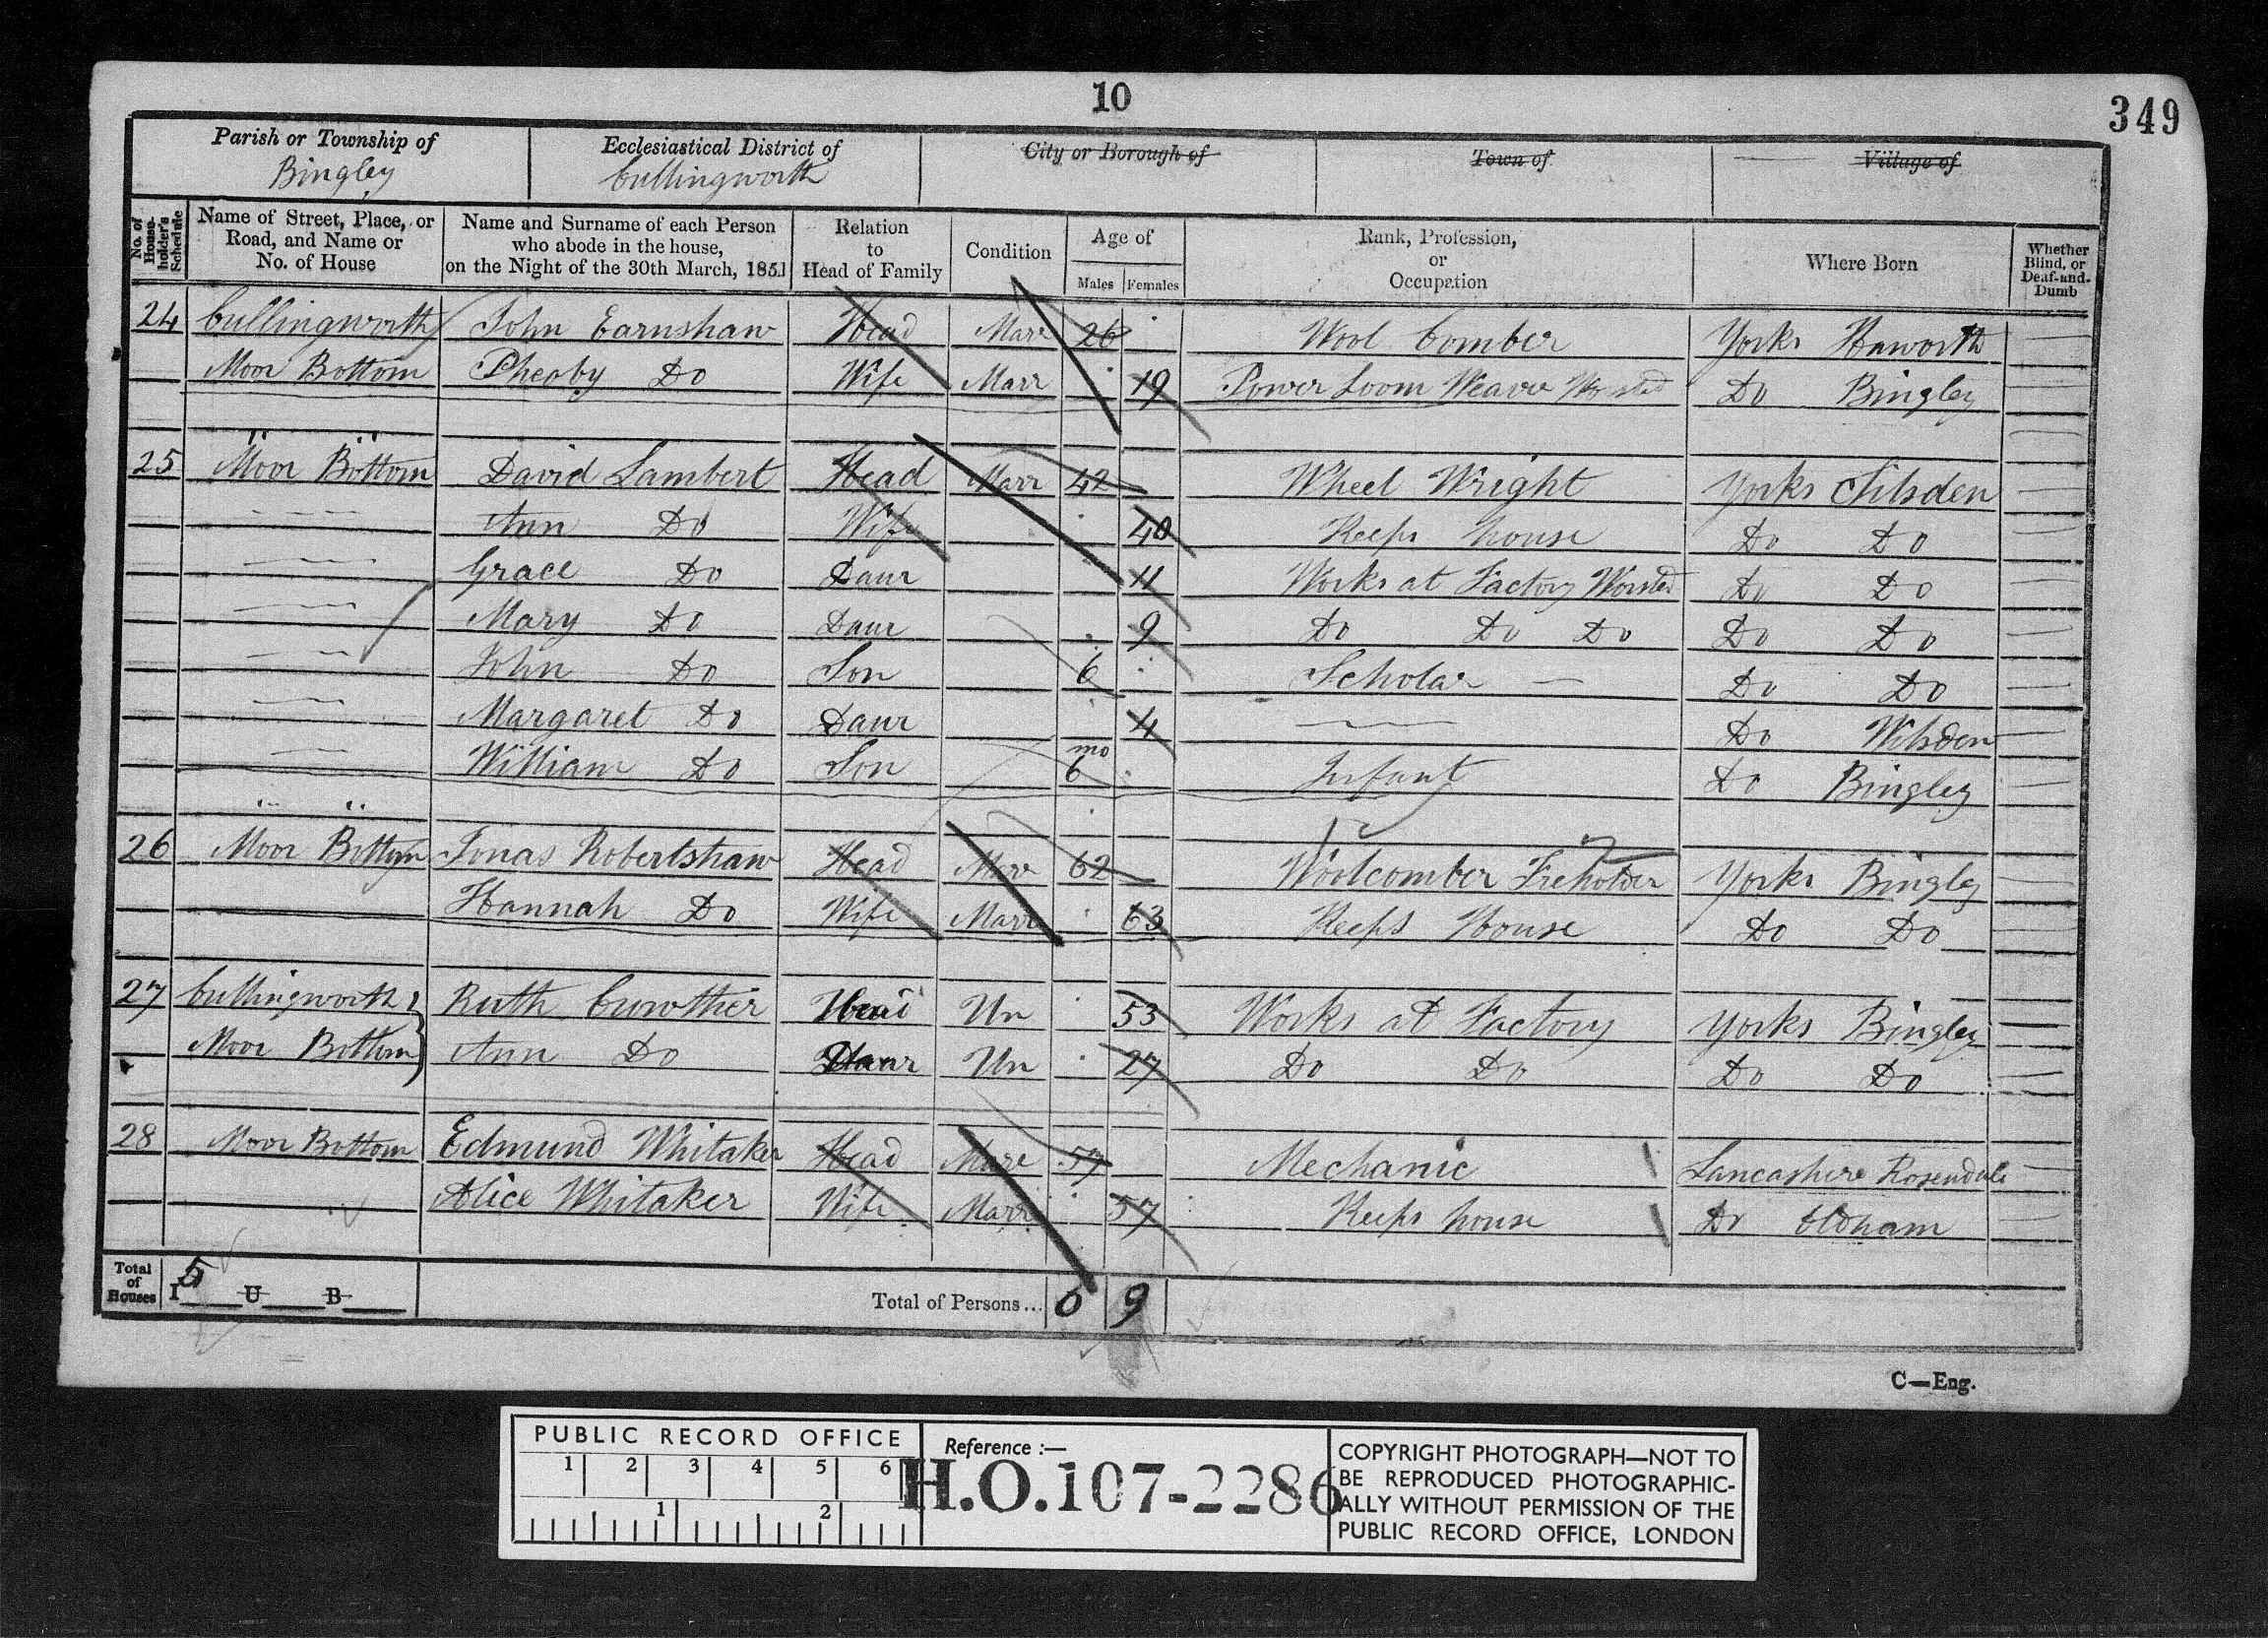 10
349
Parish or Township of
Bingley
Ecclesiastical District of
Cullingworth
City or Borough of
Town of
Village of
No. of House-holder's Schedule
Name of Street, Place, or Road, and Name or No. of House
Name and Surname of each Person who abode in the house, on the Night of the 30th March, 1851
Relation to Head of Family
Condition
Age of
Males Females
Rank, Profession, or Occupation
Where Born
Whether Blind, or Deaf-and-Dumb
24 Cullingworth John Earnshaw Head Marr 26 Wool Comber Yorks Haworth
Moor Bottom Pheoby Do Wife Marr 19 Power Loom Weaver Worsted Do Bingley
25 Moor Bottom David Lambert Head Marr 42 Wheel Wright Yorks Silsden
Ann Do Wife 40 Keeps house Do Do
Grace Do Daur 11 Works at Factory Worsted Do Do
Mary Do Daur 9 Do Do Do Do Do
John Do Son 6 Scholar Do Do
Margaret Do Daur 4 Do Wilsden
William Do Son 6 mo Infant Do Bingley
26 Moor Bottom Jonas Robertshaw Head Marr 62 Woolcomber Freholder Yorks Bingley
Hannah Do Wife Marr 63 Keeps House Do Do
27 Cullingworth Ruth Crowther Head Un 53 Works at Factory Yorks Bingley
Moor Bottom Ann Do Daur Un 27 Do Do Do Do
28 Moor Bottom Edmund Whitaker Head Marr 57 Mechanic Lancashire Rosendale
Alice Whitaker Wife Marr 57 Keeps house Do Oldham
Total of Houses I 5 U B Total of Persons... 6 9
C—Eng.
PUBLIC RECORD OFFICE
1 2 3 4 5 6
1 2
Reference :—
H.O.107-2286
COPYRIGHT PHOTOGRAPH—NOT TO
BE REPRODUCED PHOTOGRAPHIC-
ALLY WITHOUT PERMISSION OF THE
PUBLIC RECORD OFFICE, LONDON